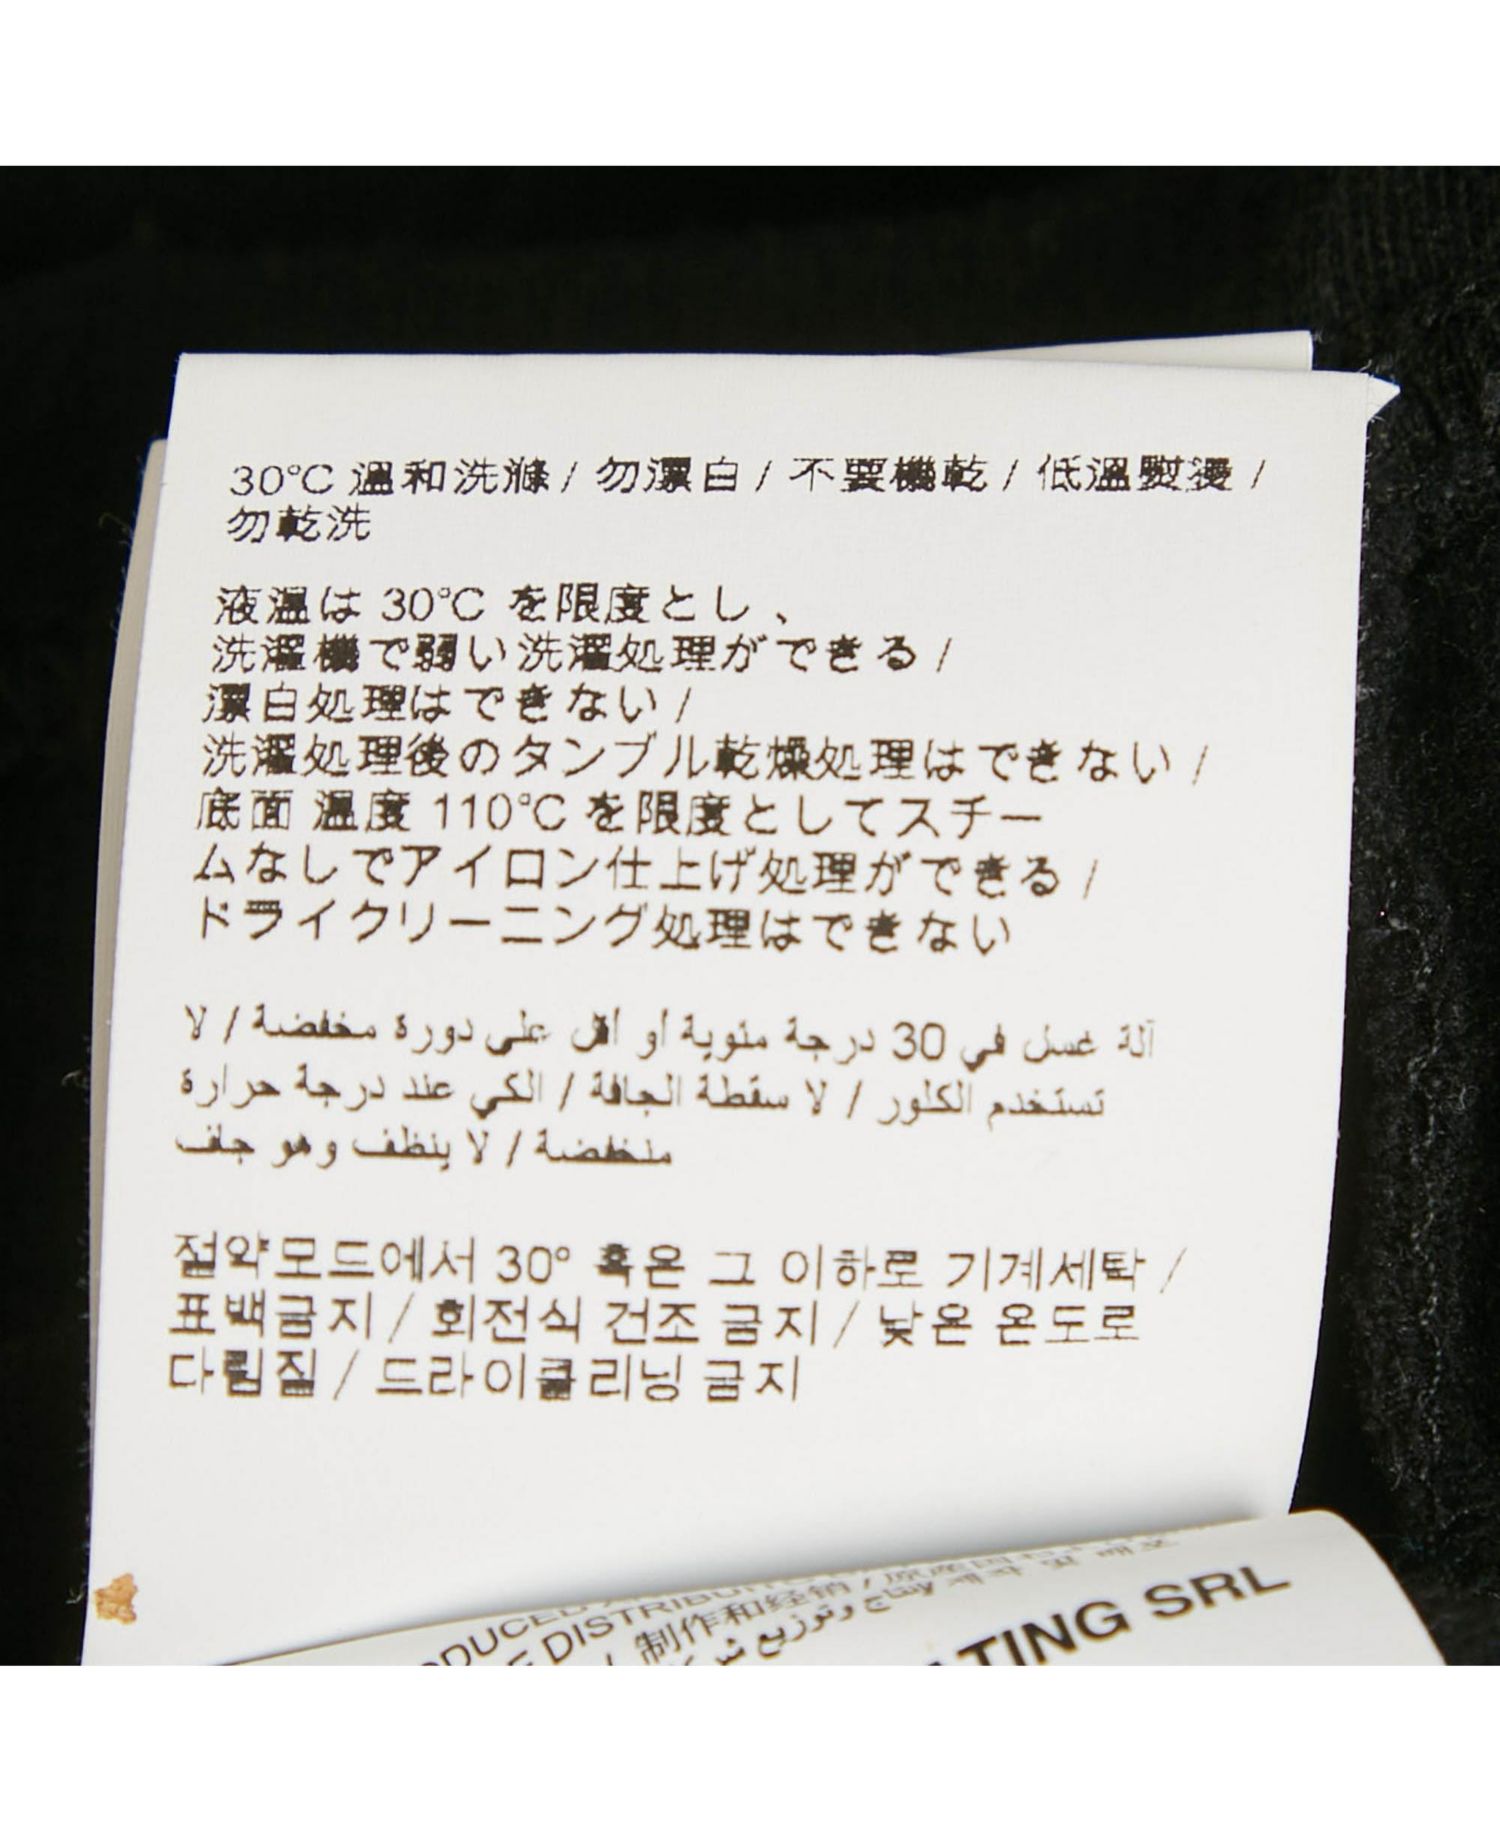 30°C 溫和洗滌 / 勿漂白 / 不要機乾 / 低溫熨燙 /
勿乾洗
液温は 30°C を限度とし 、
洗濯機で弱い洗濯処理ができる /
漂白処理はできない /
洗濯処理後のタンブル乾燥処理はできない /
底面 温度 110°C を限度としてスチー
ムなしでアイロン仕上げ処理ができる /
ドライクリーニング処理はできない
آلة غسل في 30 درجة مئوية أو أقل على دورة مخفضة / لا
تستخدم الكلور / لا سقطة الجافة / الكي عند درجة حرارة
منخفضة / لا ينظف وهو جاف
절약모드에서 30° 혹은 그 이하로 기계세탁 /
표백금지 / 회전식 건조 금지 / 낮은 온도로
다림질 / 드라이클리닝 금지
DISTRIBU
制作和经销
TING SRL